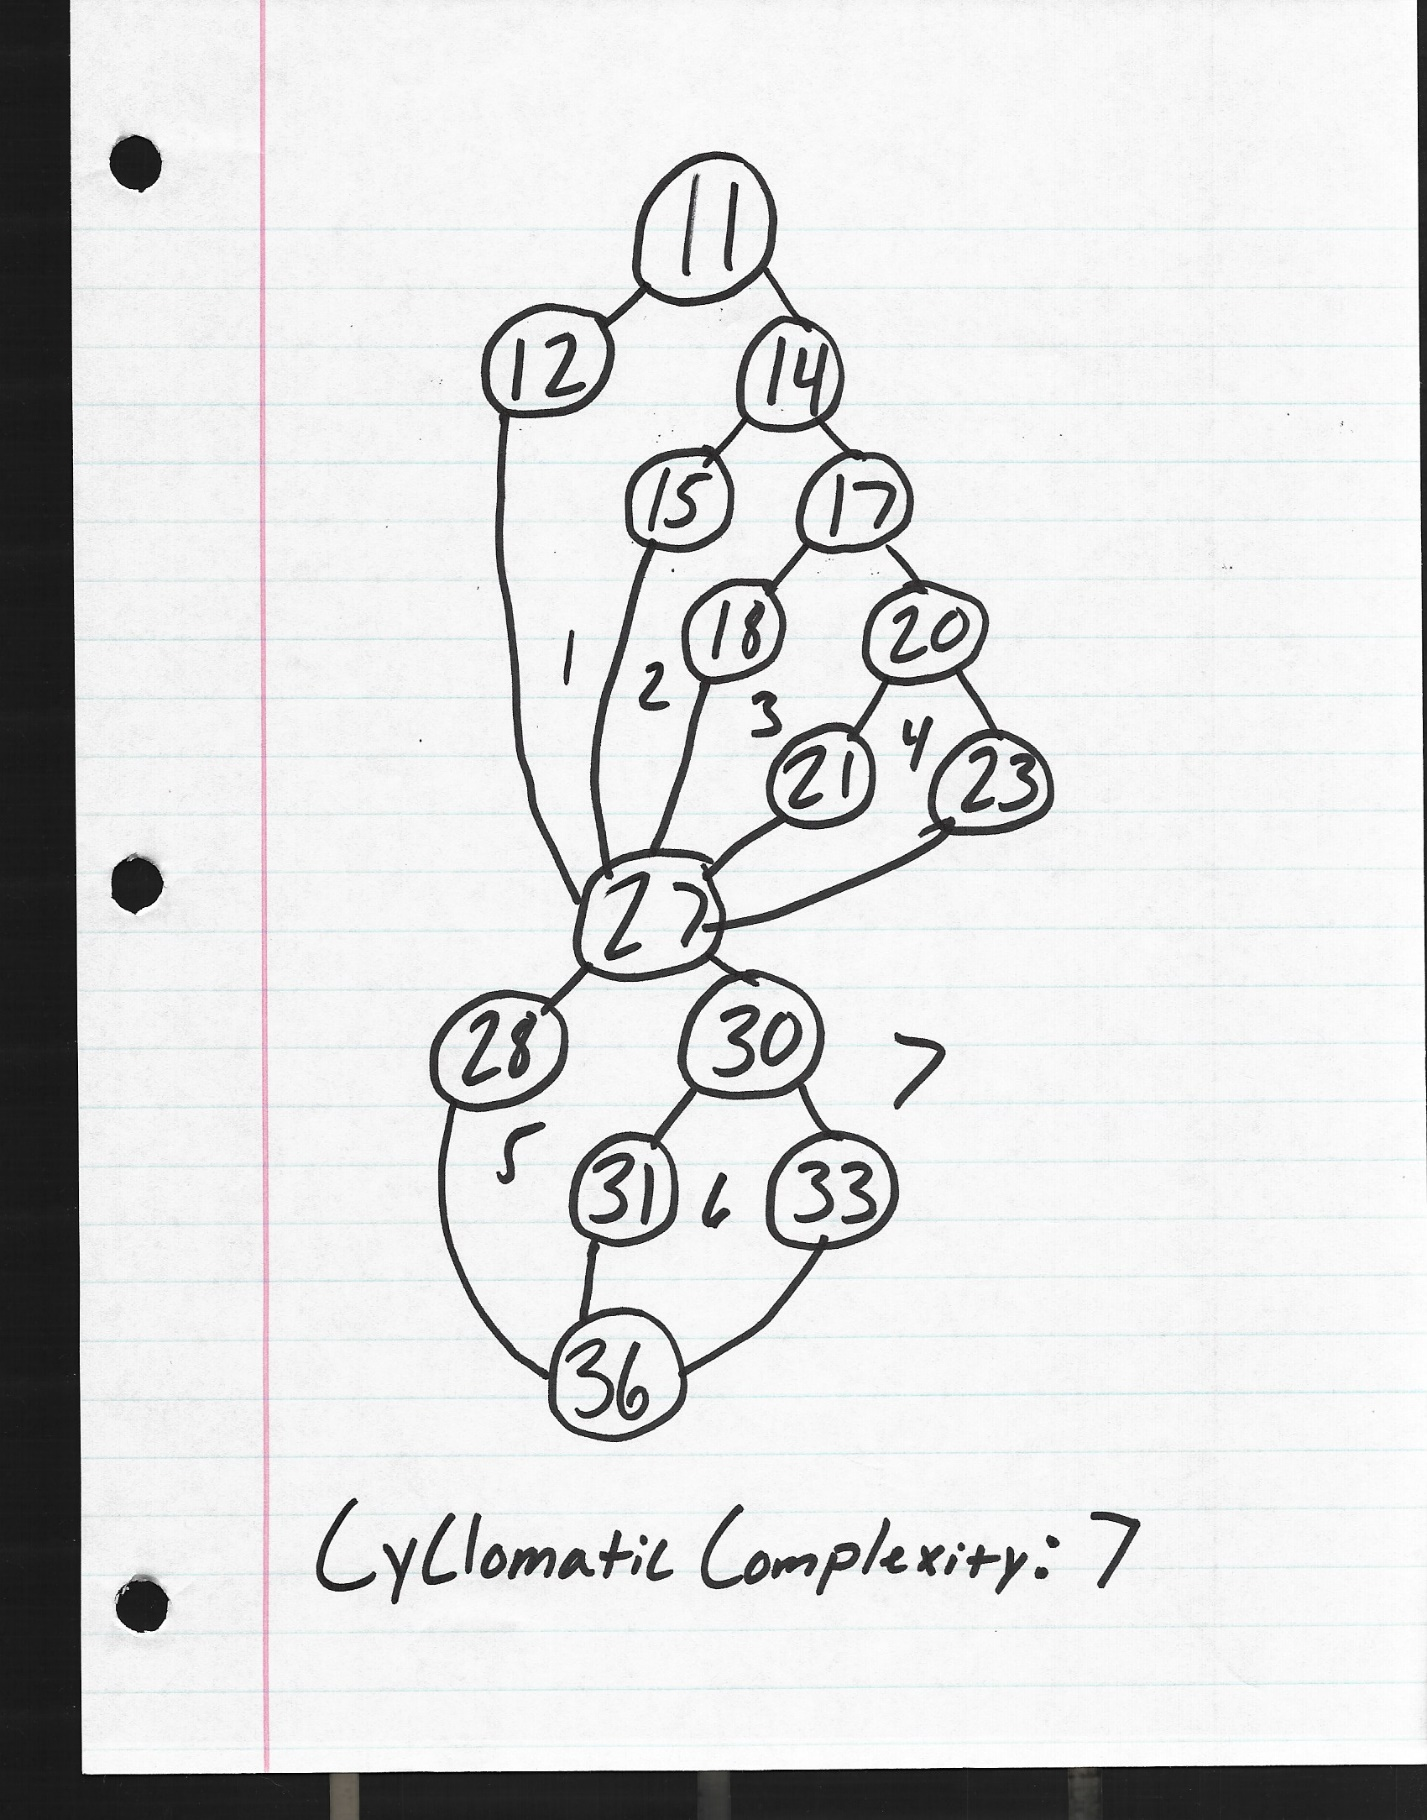 11
12
14
15
17
18
20
1
2
3
4
21
23
27
28
30
7
5
31
6
33
36
Cyclomatic Complexity: 7